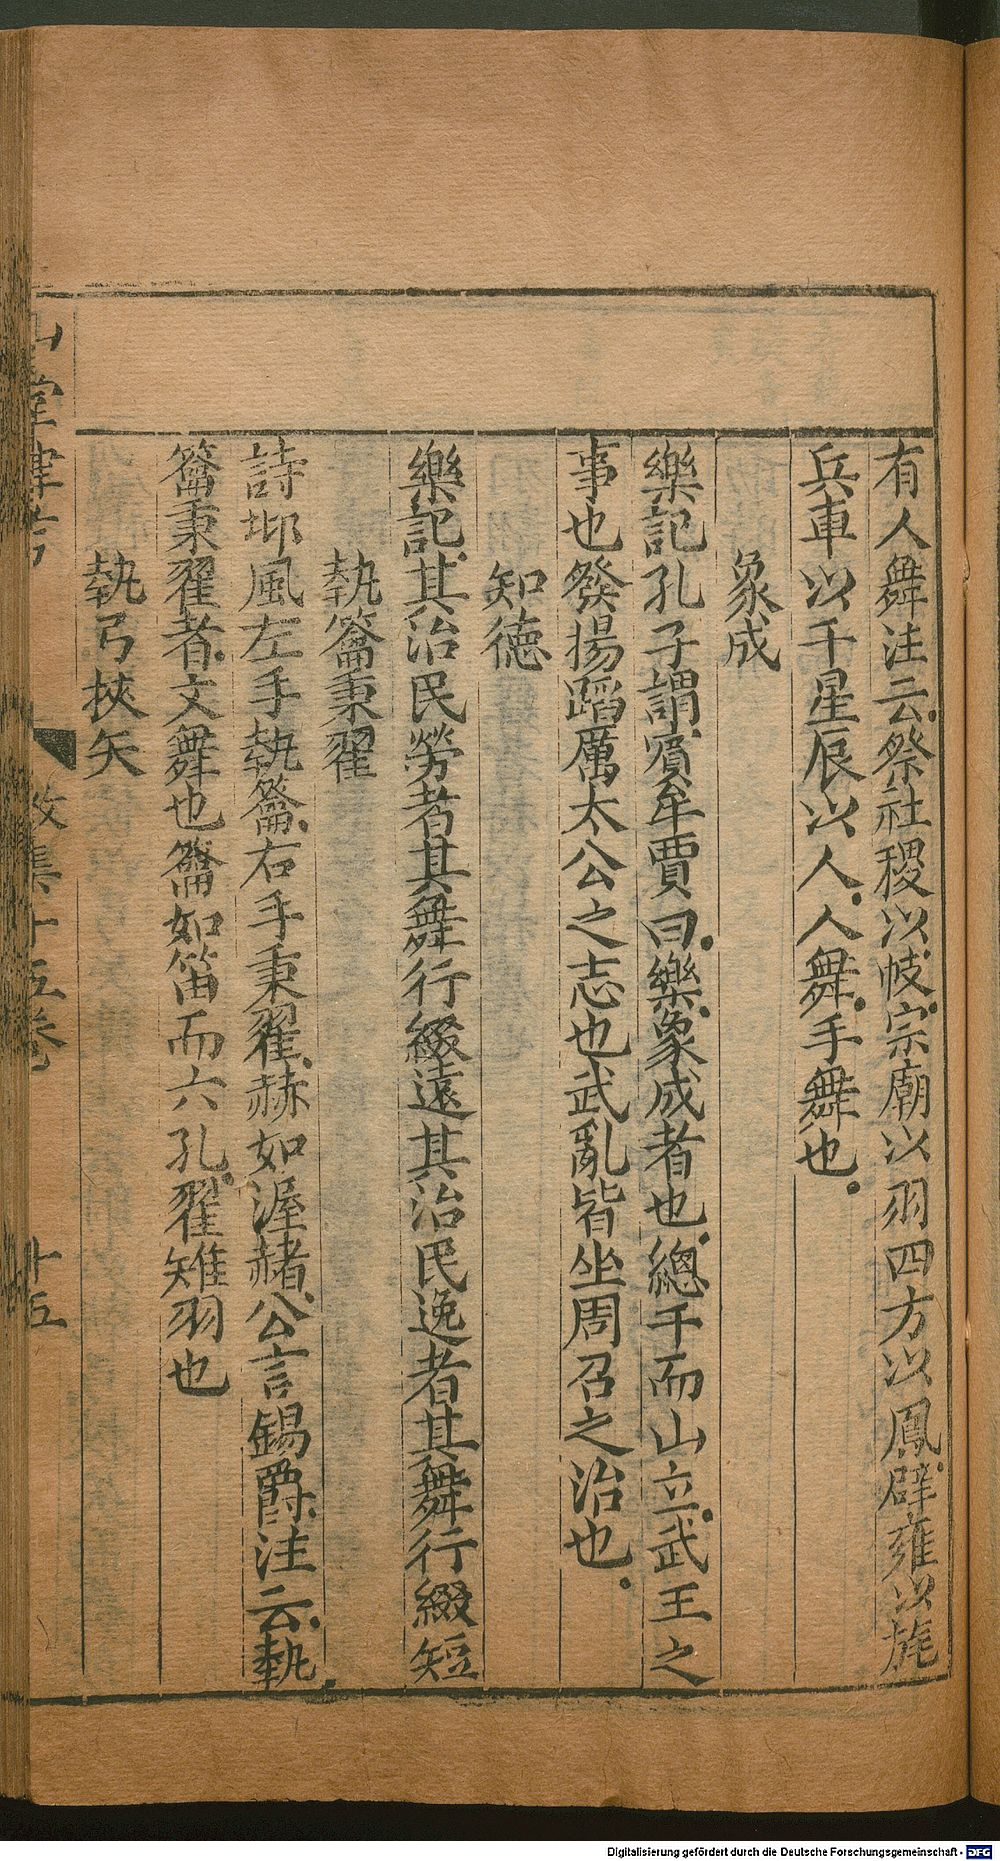 有人舞注云祭社稷以帗宗廟以羽四方以鳳辟雍以旄
兵車以干星辰以人人舞手舞也
象成
樂記孔子謂賓牟賈曰樂象成者也總干而山立武王之
事也發揚蹈厲太公之志也武亂皆坐周召之治也
知德
樂記其治民勞者其舞行綴遠其治民逸者其舞行綴短
執籥秉翟
詩邶風左手執籥右手秉翟赫如渥赭公言錫爵注云執
籥秉翟者文舞也籥如笛而六孔翟雉羽也
執弓挾矢
山堂肆考
徵集十五卷
十五
Digitalisierung gefördert durch die Deutsche Forschungsgemeinschaft - DFG